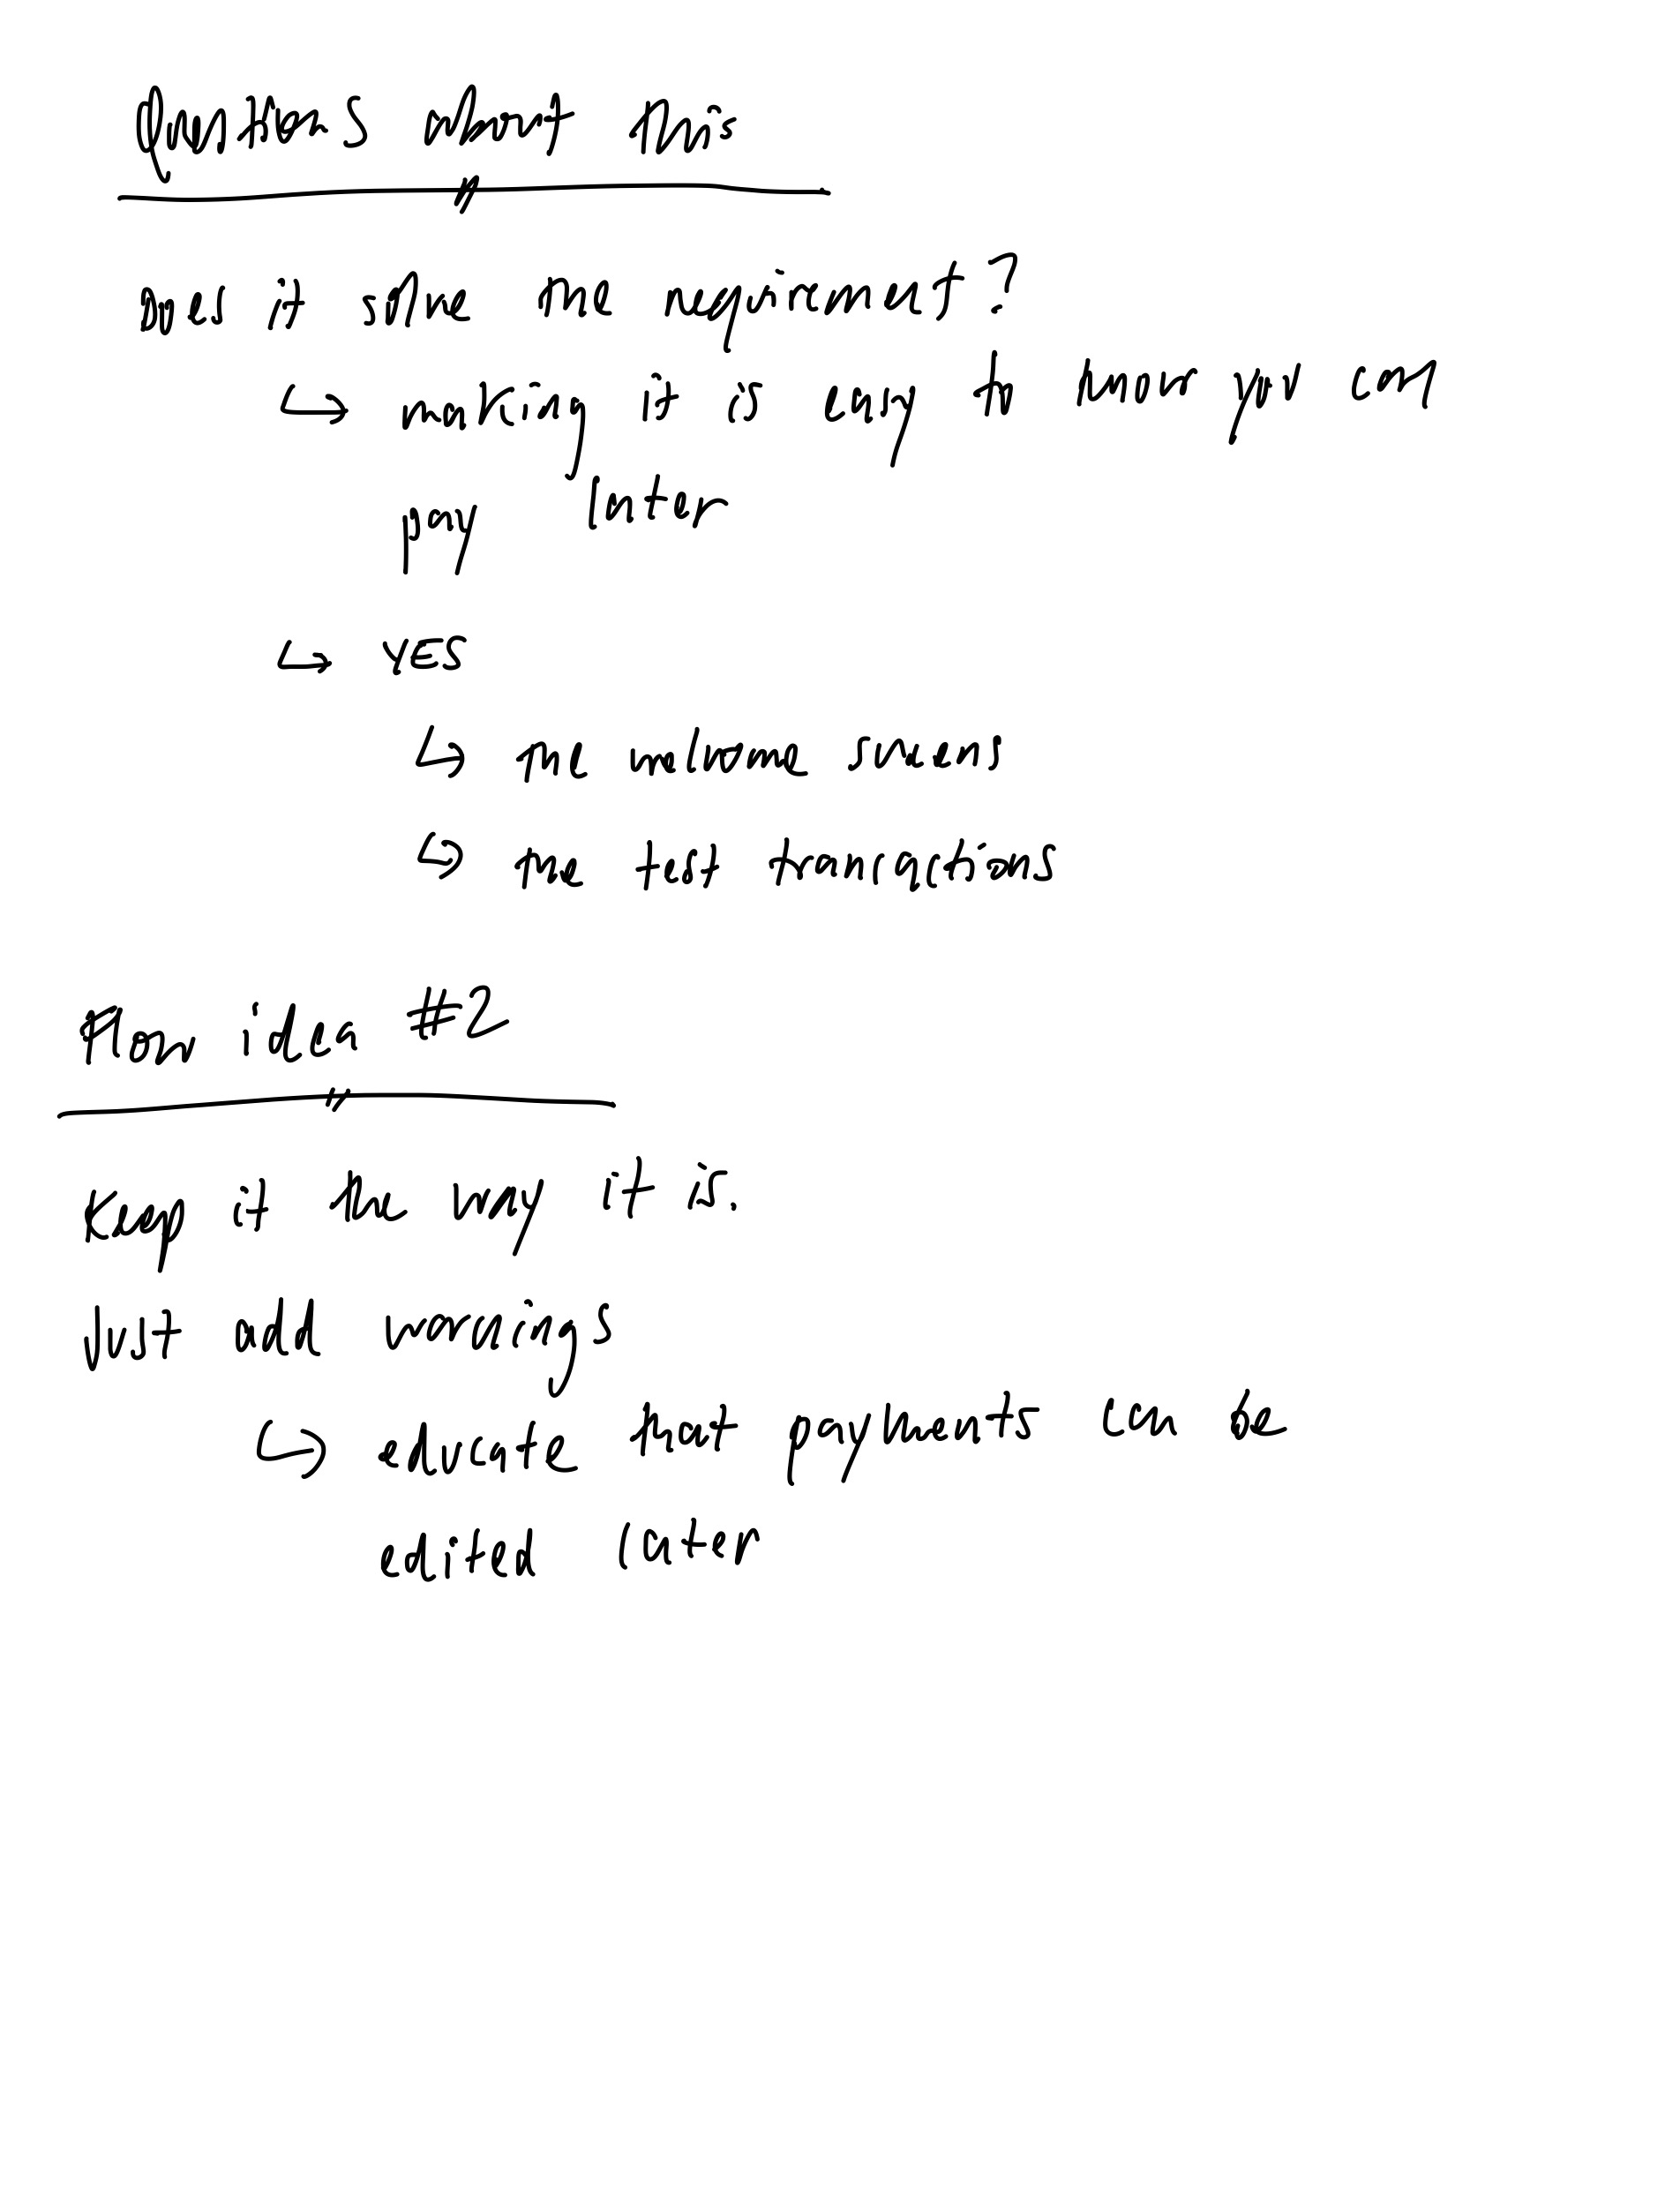 Questions about this
does it solve the requirement?
↳ making it is easy to know you can
pay later
↳ YES
↳ the welcome screens
↳ the test transactions
Flow idea #2
Keep it the way it is.
Just add warnings
↳ educate that payments can be
edited later